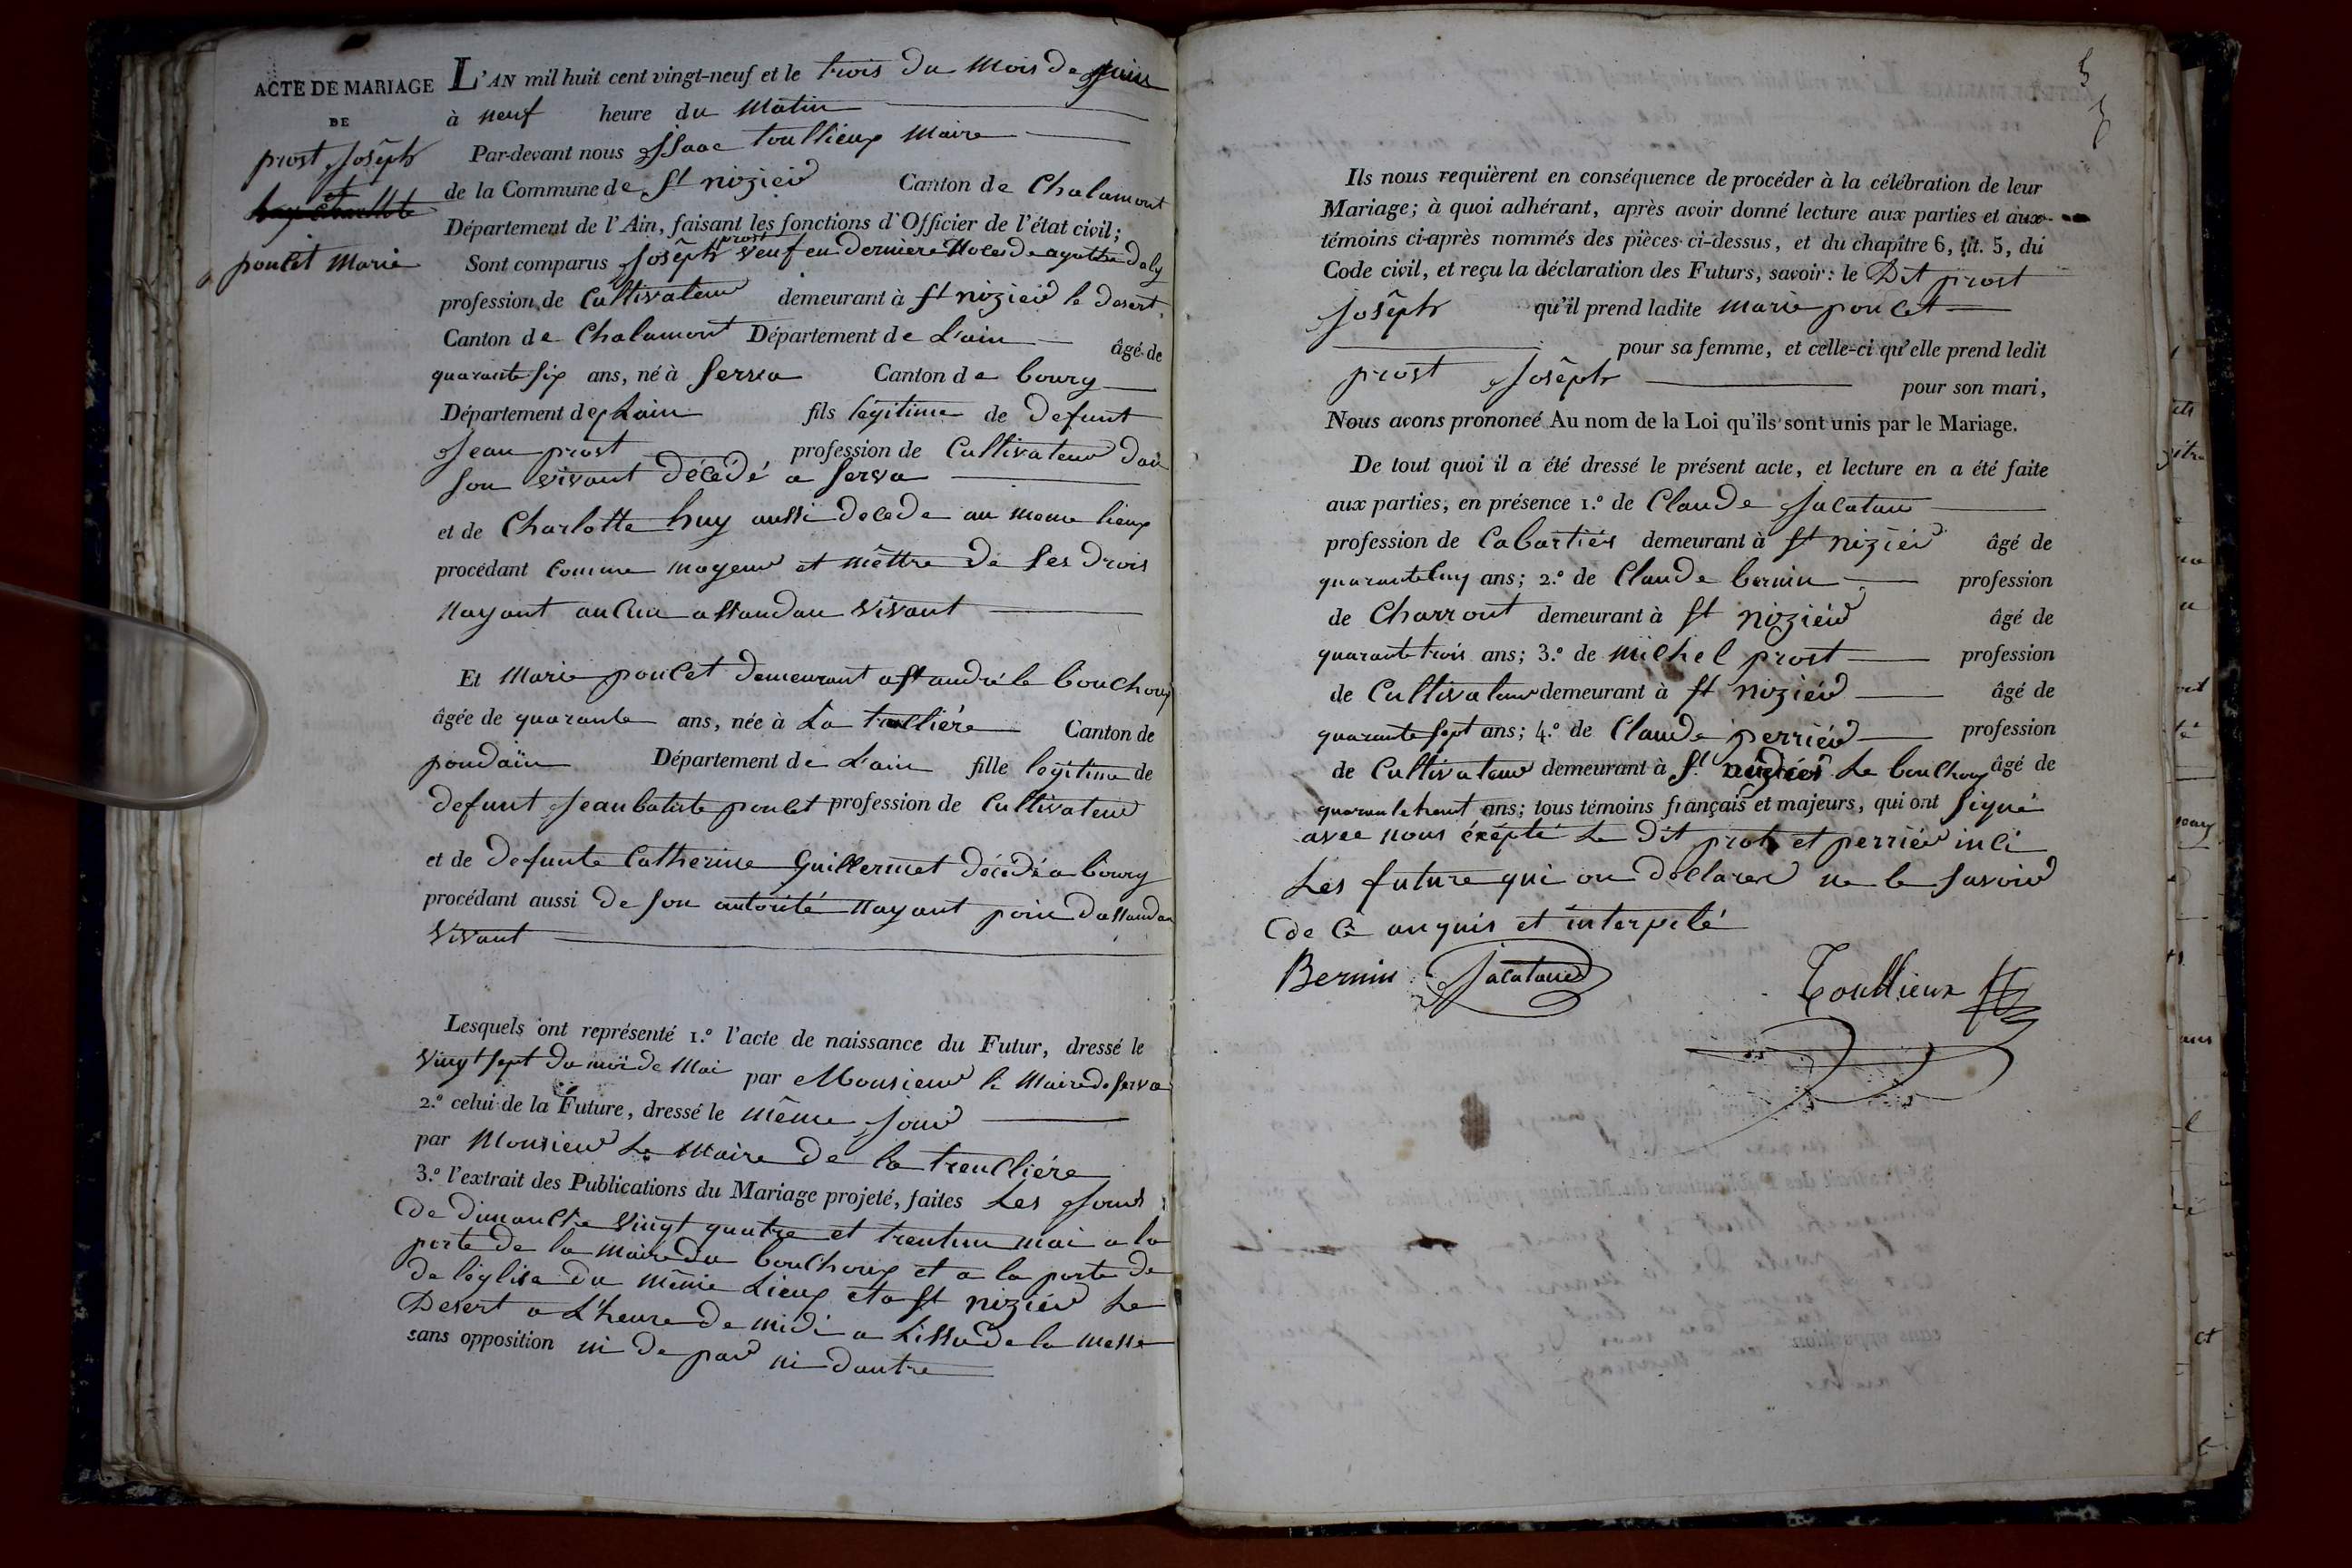 ACTE DE MARIAGE
DE
prost Joseph
et
huy Charlotte
poncet Marie
L'AN mil huit cent vingt-neuf et le trois du Mois de Juin
à neuf heure du Matin
Par-devant nous Isaac toullieux Maire
de la Commune de St niziéd Canton de Chalamont
Département de l'Ain, faisant les fonctions d'Officier de l'état civil;
Sont comparus Joseph prost veuf en derniere Noces de agathe daly
profession de Cultivateur demeurant à St niziéd le desert
Canton de Chalamont Département de L'ain âgé de
quarante six ans, né à Serva Canton de bourg
Département de Lain fils légitime de defunt
Jean prost profession de Cultivateur dan
Son vivant décédé a Serva
et de Charlotte huy aussi decede au meme lieux
procédant Comme mayeur et mêttre de Ses drois
Nayant aucun assandan vivant
Et Marie poncet demeurant a St andré le bouchoux
âgée de quarante ans, née à La tranclière Canton de
pondain Département de L'ain fille legitime de
defunt Jean batiste poncet profession de Cultivateur
et de defunte Catherine Guillermet décédé a bourg
procédant aussi de son autorité Nayant poin dassandan
vivant
Lesquels ont représenté 1.º l'acte de naissance du Futur, dressé le
vingt sept du moi de Mai par Monsieur le Maire de Serva
2.º celui de la Future, dressé le même Jour
par Monsieur Le Maire de la trencliére
3.º l'extrait des Publications du Mariage projeté, faites Les Jours
de dimanche vingt quatre et trentun mai a la
porte de la maire du bouchoux et a la porte de
de léglise du même Lieux et a St niziéd Le
Desert a L'heure de midi a Lissu de la messe
sans opposition ni de par ni dautre
Ils nous requièrent en conséquence de procéder à la célébration de leur
Mariage; à quoi adhérant, après avoir donné lecture aux parties et aux
témoins ci-après nommés des pièces ci-dessus, et du chapitre 6, tit. 5, du
Code civil, et reçu la déclaration des Futurs, savoir: le Dit prost
Joseph qu'il prend ladite marie poncet
pour sa femme, et celle-ci qu'elle prend ledit
prost Joseph pour son mari,
Nous avons prononcé Au nom de la Loi qu'ils sont unis par le Mariage.
De tout quoi il a été dressé le présent acte, et lecture en a été faite
aux parties, en présence 1.º de Claude Jacatau
profession de Cabartiés demeurant à St niziéd âgé de
quarante Cinq ans; 2.º de Claude bernin profession
de Charront demeurant à St niziéd âgé de
quarante trois ans; 3.º de michel prost profession
de Cultivateur demeurant à St niziéd âgé de
quarante sept ans; 4.º de Claude perriéd profession
de Cultivateur demeurant à St. Le bouchoux âgé de
quarante huit ans; tous témoins français et majeurs, qui ont Signé
avec nous éxépté Le Dit prost et perriéd inci
Les future qui on dellarer ne le savoir
de Ce anquis et interpelé
Bernin Jacataud Toullieux